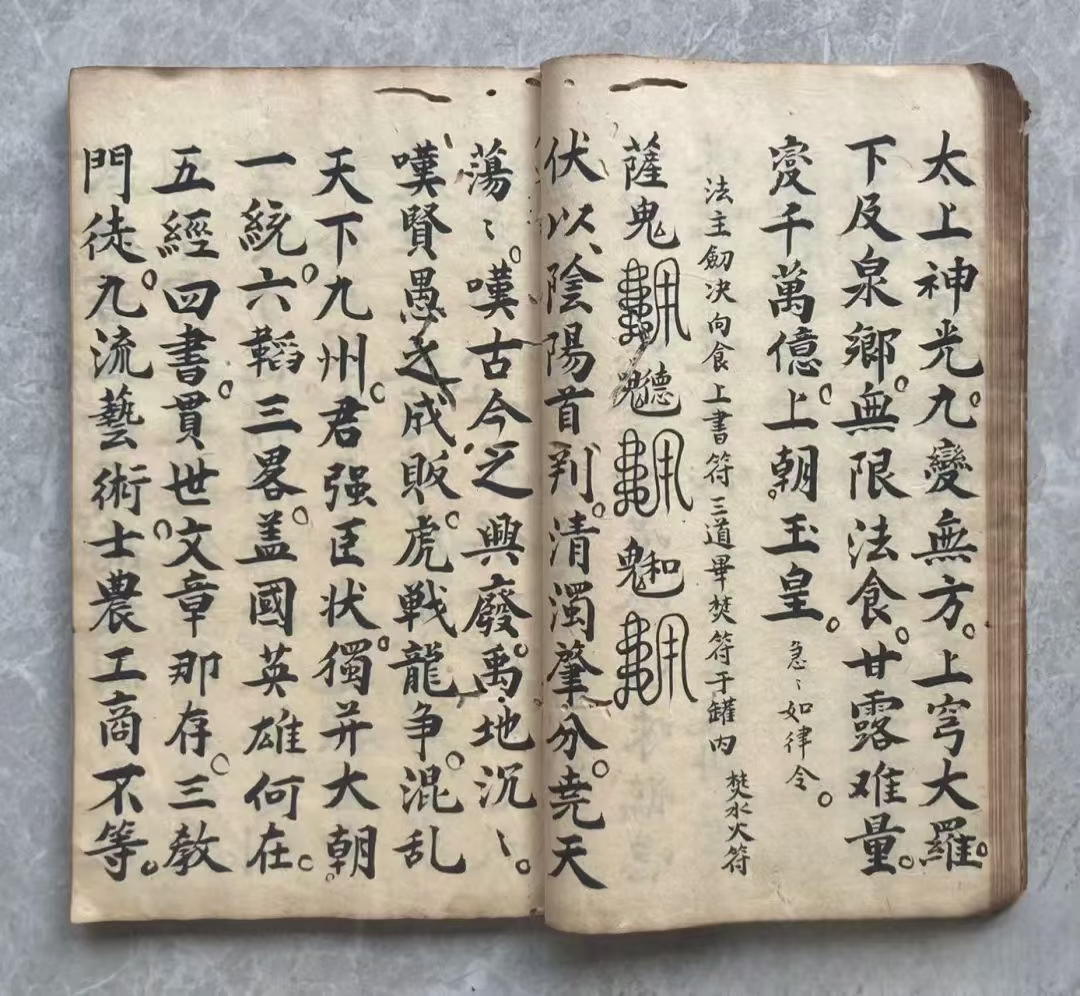 太上神光九變無方。上穹大羅。
下及泉鄉。無限法食。甘露难量。
变千萬億。上朝玉皇。急〻如律令。
法主劒决向食上書符三道畢焚符于罐内 焚水火符
薩鬼
伏以、陰陽首判。清濁肇分。堯天
蕩〻。嘆古今之興廢。禹地沉〻。
嘆賢愚之成敗。虎戦龍争。混乱
天下九州。君强臣状。獨并大朝
一統。六韜三畧。盖國英雄何在。
五經四書。貫世文章那存。三教
門徒。九流藝術。士農工商不等。